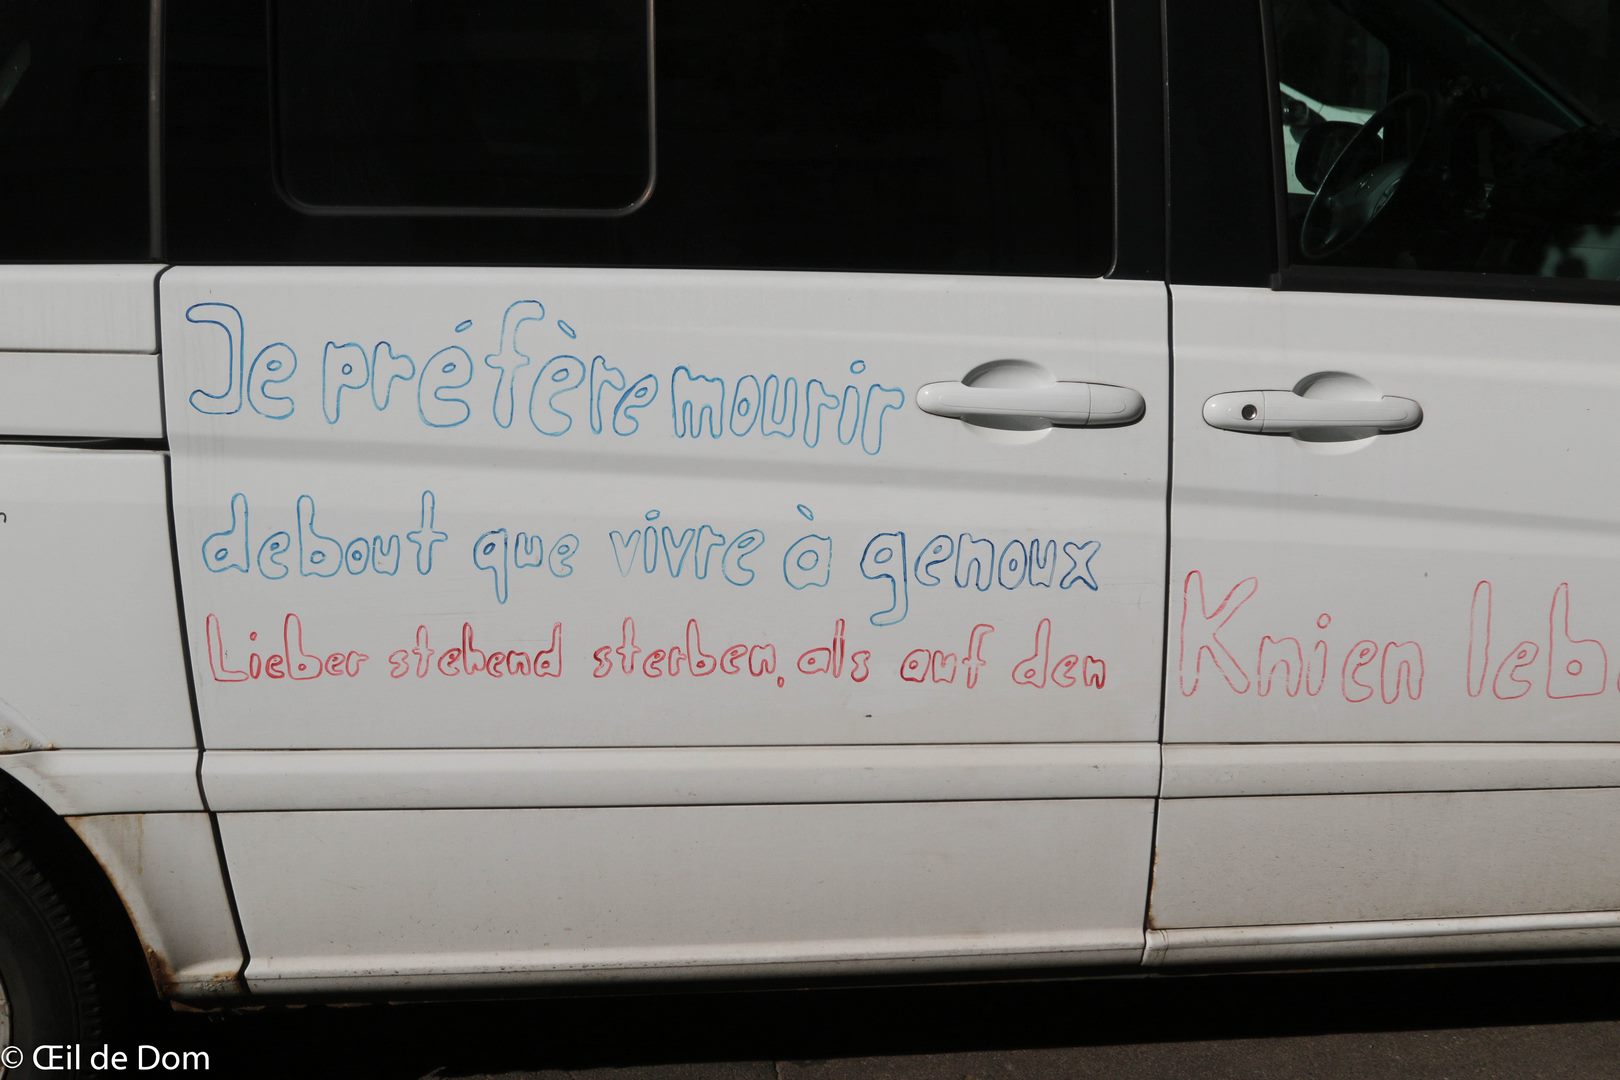 Je préfère mourir
debout que vivre à genoux
Lieber stehend sterben, als auf den Knien leb
© Œil de Dom